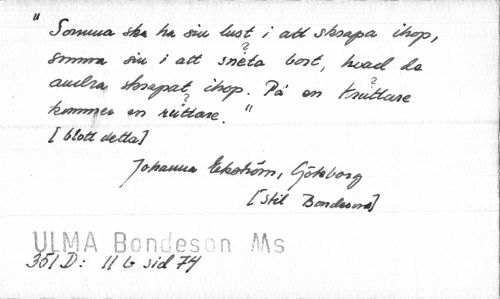 "Somma ska ha sin lust i att skrapa ihop,
somma sin i att sneta bort, hvad de
?
andra skrapat ihop. På en knittare
? ?
kommer en rittare."
[blott detta]
Johanna Ekström, Göteborg
[stil Bondesons]
ULMA Bondeson Ms
351 D: 11 b sid 74